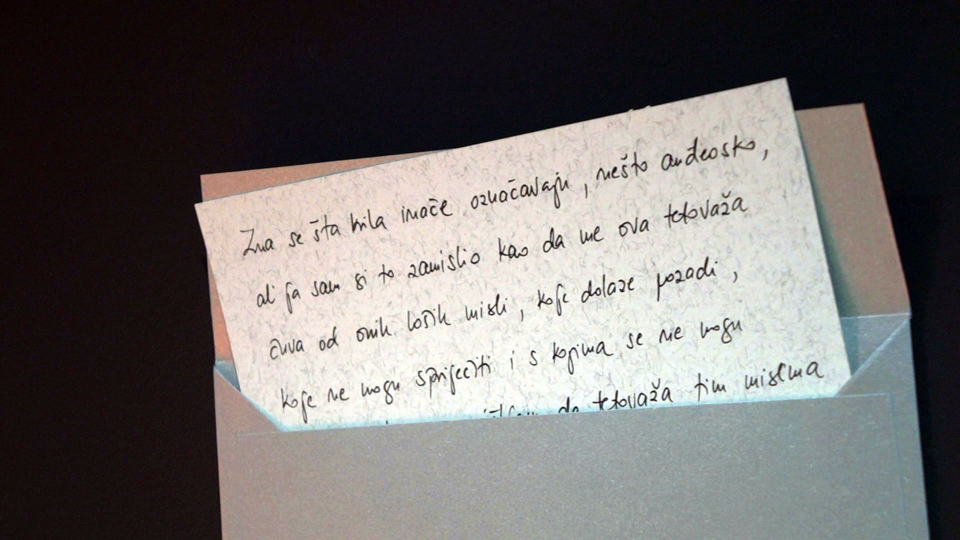 Zna se šta krila inače označavaju, nešto anđeosko,
al' ja sam si to zamislio kao da me ova tetovaža
čuva od onih loših misli, koje dolaze pozadi,
koje ne mogu spriječiti i s kojima se ne mogu
da tetovaža tim mislima